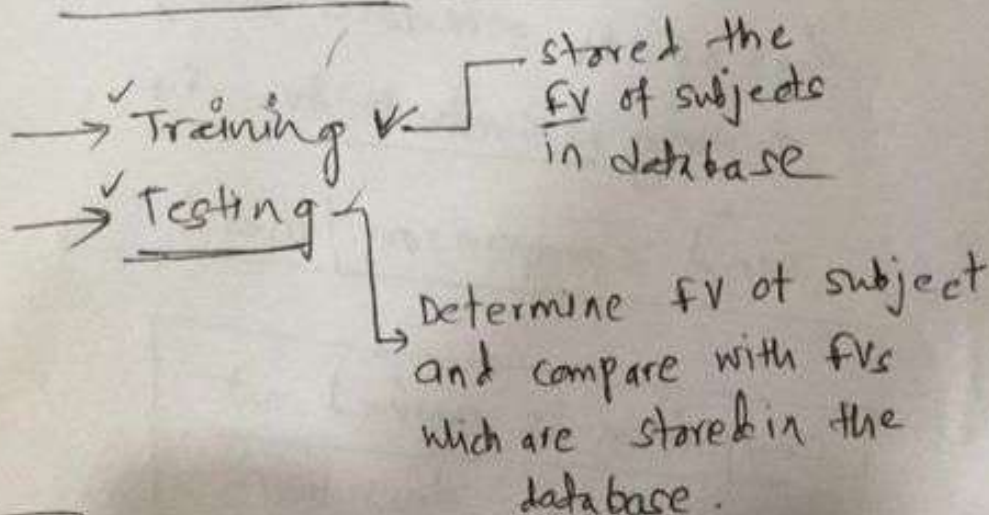 → ✓ Training
stored the
FV of subjects
in database
→ ✓ Testing
Determine FV of subject
and compare with FVs
which are stored in the
database.